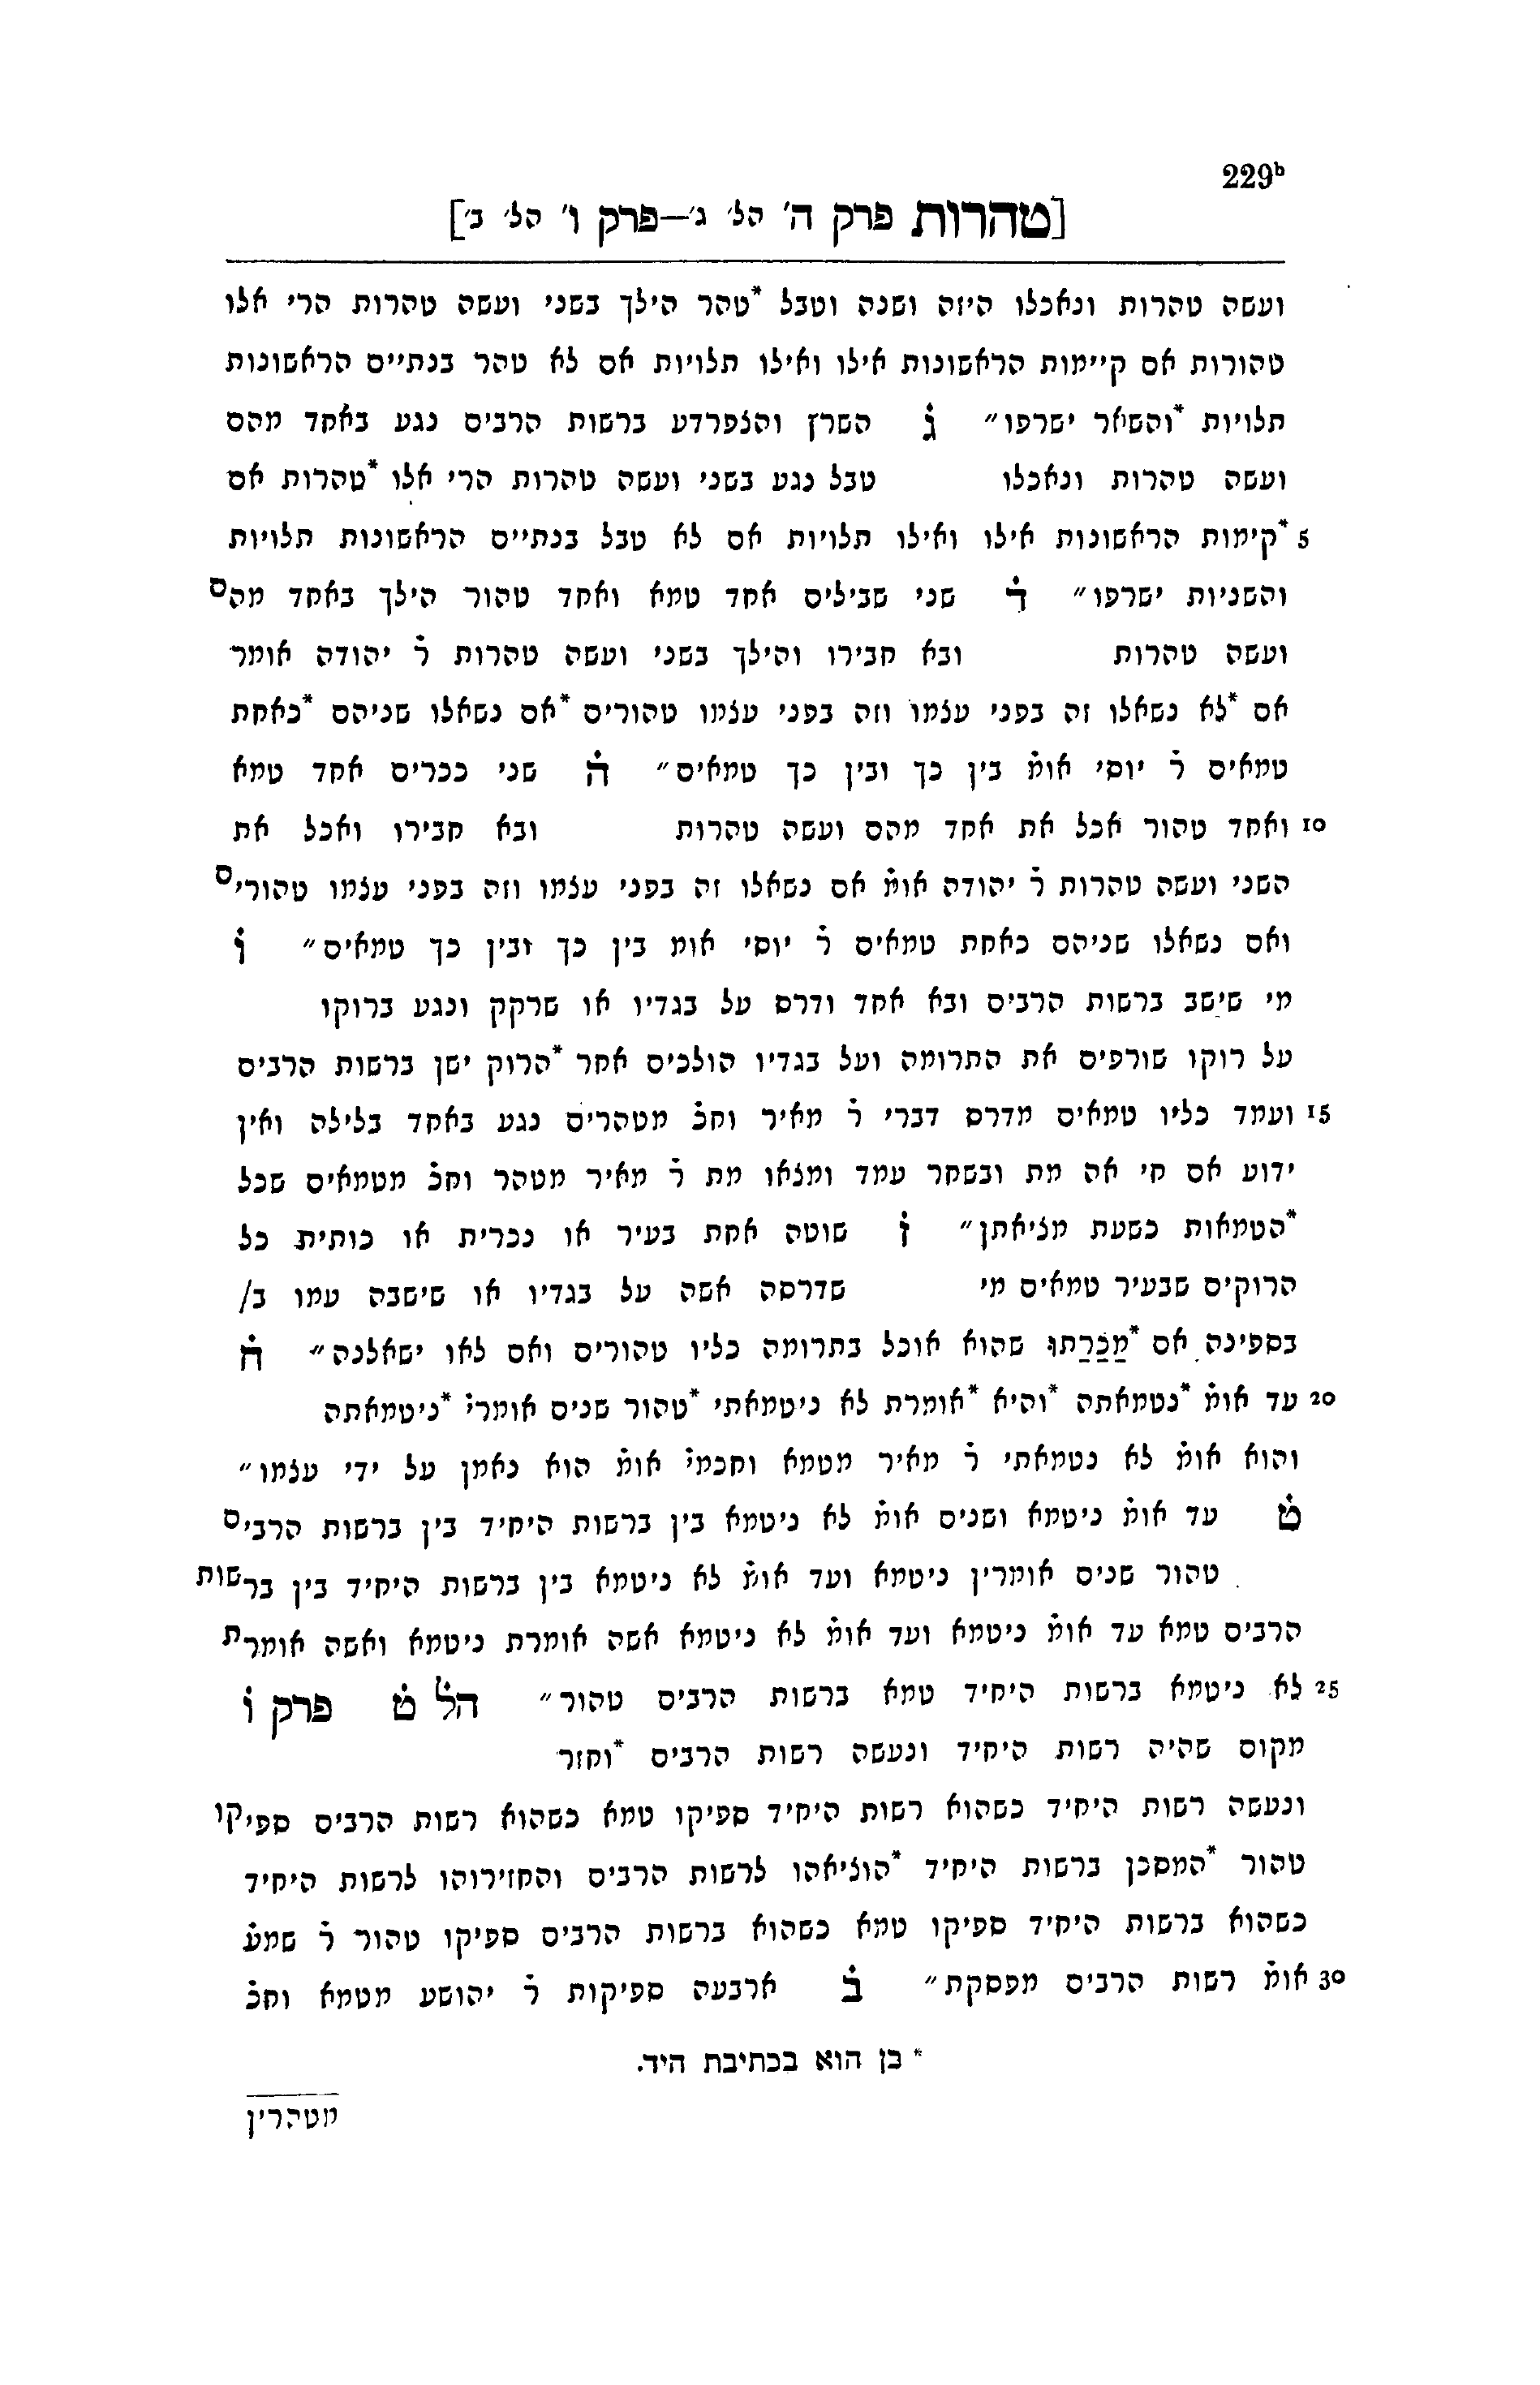 229b
[טהרות פרק ה' הל' ג'—פרק ו' הל' ב']
ועשה טהרות ונאכלו היזה ושנה וטבל *טהר הילך בשני ועשה טהרות הרי אלו
טהורות אם קיימות הראשונות אילו ואילו תלויות אם לא טהר בנתיים הראשונות
תלויות *והשאר ישרפו״ ג̇ השרץ והצפרדע ברשות הרבים נגע באחד מהם
ועשה טהרות ונאכלו טבל נגע בשני ועשה טהרות הרי אלו *טהרות אם
5 *קימות הראשונות אילו ואילו תלויות אם לא טבל בנתיים הראשונות תלויות
והשניות ישרפו״ ד̇ שני שבילים אחד טמא ואחד טהור הילך באחד מהם
ועשה טהרות ובא חבירו והילך בשני ועשה טהרות ר̇ יהודה אומר
אם *לא נשאלו זה בפני עצמו וזה בפני עצמו טהורים *אם נשאלו שניהם *כאחת
טמאים ר̇ יוסי אומ̇ בין כך ובין כך טמאים״ ה̇ שני ככרים אחד טמא
10 ואחד טהור אכל את אחד מהם ועשה טהרות ובא חבירו ואכל את
השני ועשה טהרות ר̇ יהודה אומ̇ אם נשאלו זה בפני עצמו וזה בפני עצמו טהורים
ואם נשאלו שניהם כאחת טמאים ר̇ יוסי אומ בין כך ובין כך טמאים״ ו̇
מי שישב ברשות הרבים ובא אחד ודרס על בגדיו או שרקק ונגע ברוקו
על רוקו שורפים את התרומה ועל בגדיו הולכים אחר *הרוק ישן ברשות הרבים
15 ועמד כליו טמאים מדרס דברי ר̇ מאיר וחכ̇ מטהרים נגע באחד בלילה ואין
ידוע אם חי אה מת ובשחר עמד ומצאו מת ר̇ מאיר מטהר וחכ̇ מטמאים שכל
*הטמאות כשעת מציאתן״ ז̇ שוטה אחת בעיר או נכרית או כותית כל
הרוקים שבעיר טמאים מי שדרסה אשה על בגדיו או שישבה עמו ב/
בספינה אם *מַכַרַתּוּ שהוא אוכל בתרומה כליו טהורים ואם לאו ישאלנה״ ח̇
20 עד אומ̇ *נטמאתה *והיא *אומרת לא ניטמאתי *טהור שנים אומרי̇ *ניטמאתה
והוא אומ̇ לא נטמאתי ר̇ מאיר מטמא וחכמי̇ אומ̇ הוא נאמן על ידי עצמו״
ט̇ עד אומ̇ ניטמא ושנים אומ̇ לא ניטמא בין ברשות היחיד בין ברשות הרבים
טהור שנים אומרין ניטמא ועד אומ̇ לא ניטמא בין ברשות היחיד בין ברשות
הרבים טמא עד אומ̇ ניטמא ועד אומ̇ לא ניטמא אשה אומרת ניטמא ואשה אומרת
25 לא ניטמא ברשות היחיד טמא ברשות הרבים טהור״ הל̇ ט̇ פרק ו̇
מקום שהיה רשות היחיד ונעשה רשות הרבים *וחזר
ונעשה רשות היחיד כשהוא רשות היחיד ספיקו טמא כשהוא רשות הרבים ספיקו
טהור *המסכן ברשות היחיד *הוציאהו לרשות הרבים והחזירוהו לרשות היחיד
כשהוא ברשות היחיד ספיקו טמא כשהוא ברשות הרבים ספיקו טהור ר̇ שמע̇
30 אומ̇ רשות הרבים מפסקת״ ב̇ ארבעה ספיקות ר̇ יהושע מטמא וחכ̇
* כן הוא בכתיבת היד.
מטהרין